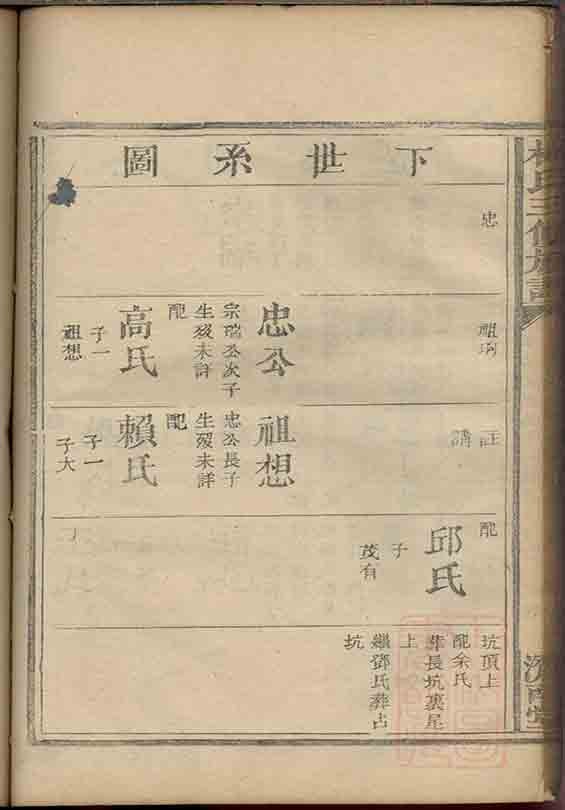 下世系圖
忠
忠公
宗瑞公次子
生歿未詳
配
高氏
子一
祖想
祖珂
祖想
忠公長子
生歿未詳
配
賴氏
子一
子大
註
講
配
邱氏
子
茂有
坑頂上
配余氏
葬長坑裏尾
上
繼鄧氏葬占
坑
氏三修族譜